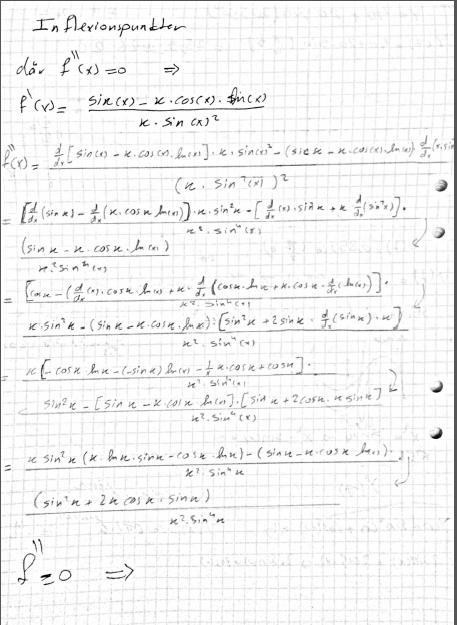 Inflexionspunkter
där f''(x) = 0 ⇒
f'(x) = (sin(x) - x·cos(x)·ln(x)) / (x·sin(x)²)
f''(x) = (d/dx[sin(x) - x·cos(x)·ln(x)]·x·sin(x)² - (sin x - x·cos(x)·ln(x))· d/dx(x·sin / (x·sin²(x))²
= [d/dx(sin x) - d/dx(x·cos x ln(x))]·x·sin²x - [d/dx(x)·sin²x + x d/dx(sin²x)]· / x²·sin⁴(x)
(sin x - x·cos x·ln(x)) / x²·sin⁴(x)
= [cos x - (d/dx(x)·cos x·ln(x) + x· d/dx(cos x·ln x + x·cos x· d/dx(ln(x))]· / x²·sin⁴(x)
x·sin²x - (sin x - x·cos x·ln(x))·[sin²x + 2 sin x· d/dx(sin x)·x] / x²·sin⁴(x)
= x[-cos x ln x - (-sin x) ln(x) - 1/x x·cos x + cos x]· / x²·sin⁴(x)
sin²x - [sin x - x·cos x ln(x)]·[sin x + 2cos x·x sin x] / x²·sin⁴(x)
= x sin²x (x·ln x·sin x - cos x·ln x) - (sin x - x·cos x ln(x))· / x²·sin⁴x
(sin²x + 2x cos x·sin x) / x²·sin⁴x
f'' = 0 ⇒